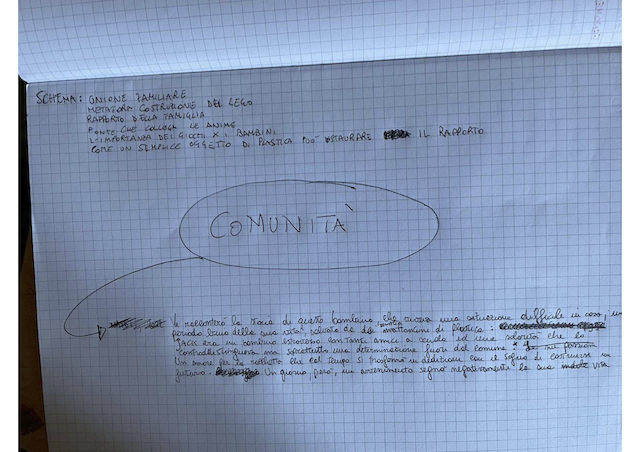 SCHEMA: UNIONE FAMILIARE
METAFORA COSTRUZIONE DEL LEGO
RAPPORTO DELLA FAMIGLIA
PONTE CHE COLLEGA LE ANIME
L'IMPORTANZA DEI GIOCHI X I BAMBINI
COME UN SEMPLICE OGGETTO DI PLASTICA PUÒ RESTAURARE IL RAPPORTO
COMUNITÀ
Vi racconterò la storia di questo bambino, che viveva una situazione difficile in casa, un
periodo buio della sua vita, salvato da dei mattoncini di plastica:
JACK era un bambino estroverso con tanti amici a scuola ed una che lo
contraddistingueva, ma soprattutto una determinazione fuori dal comune
Un amore per le che col tempo si trasformò in dedizione con il sogno di costruire un
futuro. Un giorno, però, un avvenimento segnò negativamente la sua vita